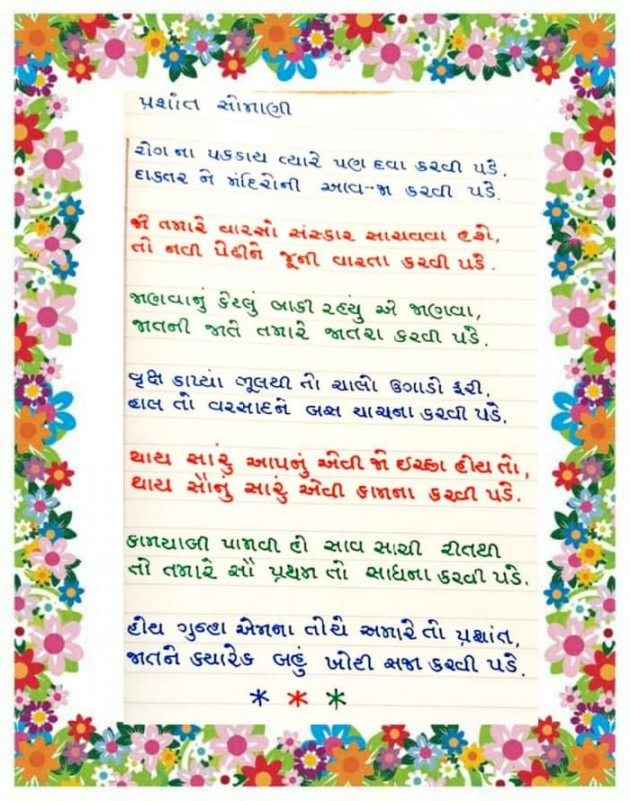 પ્રશાંત સોમાણી
રોગ ના પકડાય ત્યારે પણ દવા કરવી પડે,
દાકતર ને મંદિરોની આવ-જા કરવી પડે.
જો તમારે વારસો સંસ્કાર સાચવવા હશે,
તો નવી પેઢીને જૂની વારતા કરવી પડે.
જાણવાનું કેટલું બાકી રહ્યું એ જાણવા,
જાતની જાતે તમારે જાતરા કરવી પડે.
વૃક્ષ કાપ્યાં ભૂલથી તો ચાલો ઉગાડો ફરી,
હાલ તો વરસાદને બસ યાચના કરવી પડે.
થાય સારું આપનું એવી જો ઈચ્છા હોય તો,
થાય સૌનું સારું એવી કામના કરવી પડે.
કામયાબી પામવી હો સાવ સાચી રીતથી
તો તમારે સૌ પ્રથમ તો સાધના કરવી પડે.
હોય ગુન્હા એમના તોયે અમારે તો પ્રશાંત,
જાતને ક્યારેક બહું ખોટી સજા કરવી પડે.
* * *